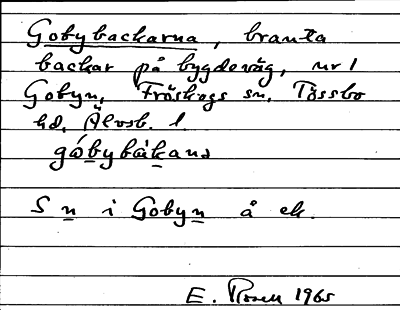 Gobybackarna, branta
backar på bygdeväg, nr 1
Gobyn, Fröskogs sn, Tössbo
hd, Älvsb. l.
góbybàkana
S n i Gobyn å ek.
E. Rosell 1965